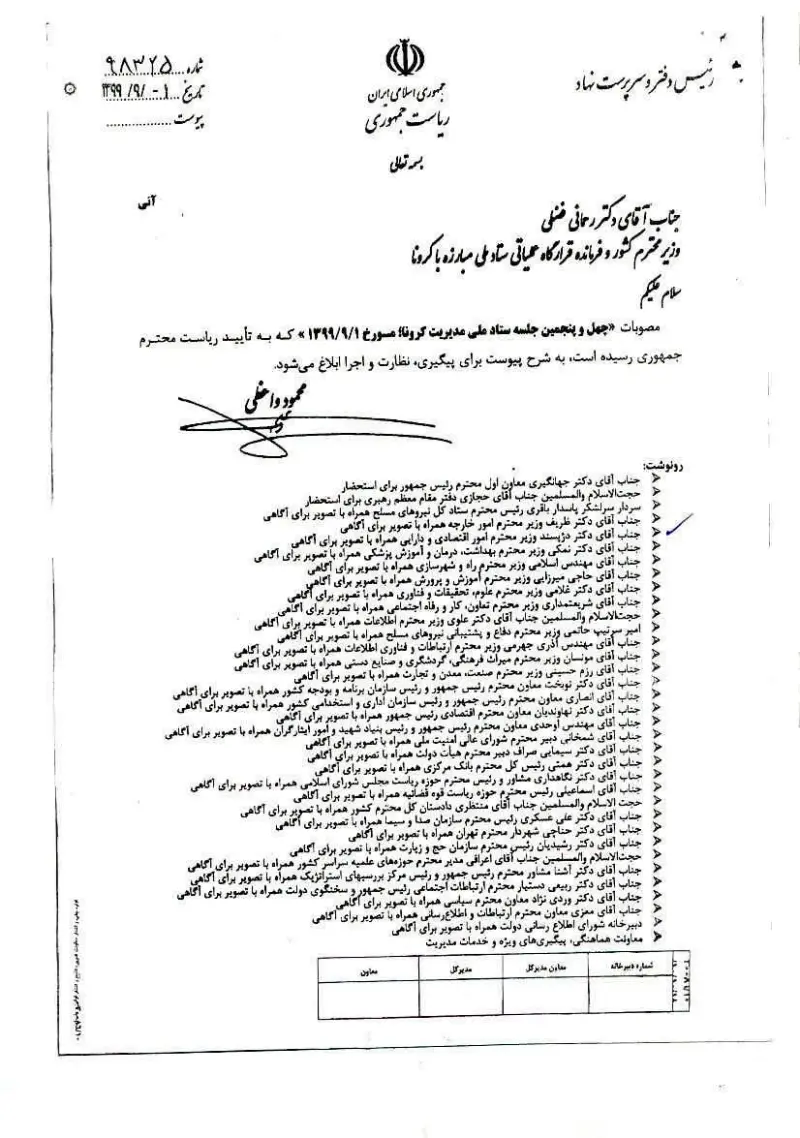 رئیس دفتر و سرپرست نهاد
جمهوری اسلامی ایران
ریاست جمهوری
بسمه تعالی
شماره ۹۸۳۲۵
تاریخ ۱۳۹۹/۹/۰۱
پیوست
آنی
جناب آقای دکتر رحمانی فضلی
وزیر محترم کشور و فرمانده قرارگاه عملیاتی ستاد ملی مبارزه با کرونا
سلام علیکم
مصوبات «چهل و پنجمین جلسه ستاد ملی مدیریت کرونا؛ مورخ ۱۳۹۹/۹/۱» که به تأیید ریاست محترم
جمهوری رسیده است، به شرح پیوست برای پیگیری، نظارت و اجرا ابلاغ می‌شود.
محمود واعظی
رونوشت:
جناب آقای دکتر جهانگیری معاون اول محترم رئیس جمهور برای استحضار
حجت‌الاسلام والمسلمین جناب آقای حجازی دفتر مقام معظم رهبری برای استحضار
سردار سرلشکر پاسدار باقری رئیس محترم ستاد کل نیروهای مسلح همراه با تصویر برای آگاهی
جناب آقای دکتر ظریف وزیر محترم امور خارجه همراه با تصویر برای آگاهی
جناب آقای دکتر دژپسند وزیر محترم امور اقتصادی و دارایی همراه با تصویر برای آگاهی
جناب آقای دکتر نمکی وزیر محترم بهداشت، درمان و آموزش پزشکی همراه با تصویر برای آگاهی
جناب آقای مهندس اسلامی وزیر محترم راه و شهرسازی همراه با تصویر برای آگاهی
جناب آقای حاجی میرزایی وزیر محترم آموزش و پرورش همراه با تصویر برای آگاهی
جناب آقای دکتر غلامی وزیر محترم علوم، تحقیقات و فناوری همراه با تصویر برای آگاهی
جناب آقای شریعتمداری وزیر محترم تعاون، کار و رفاه اجتماعی همراه با تصویر برای آگاهی
حجت‌الاسلام والمسلمین جناب آقای دکتر علوی وزیر محترم اطلاعات همراه با تصویر برای آگاهی
امیر سرتیپ حاتمی وزیر محترم دفاع و پشتیبانی نیروهای مسلح همراه با تصویر برای آگاهی
جناب آقای مهندس آذری جهرمی وزیر محترم ارتباطات و فناوری اطلاعات همراه با تصویر برای آگاهی
جناب آقای مونسان وزیر محترم میراث فرهنگی، گردشگری و صنایع دستی همراه با تصویر برای آگاهی
جناب آقای رزم حسینی وزیر محترم صنعت، معدن و تجارت همراه با تصویر برای آگاهی
جناب آقای دکتر نوبخت معاون محترم رئیس جمهور و رئیس سازمان برنامه و بودجه کشور همراه با تصویر برای آگاهی
جناب آقای انصاری معاون محترم رئیس جمهور و رئیس سازمان اداری و استخدامی کشور همراه با تصویر برای آگاهی
جناب آقای دکتر نهاوندیان معاون محترم اقتصادی رئیس جمهور همراه با تصویر برای آگاهی
جناب آقای مهندس اوحدی معاون محترم رئیس جمهور و رئیس بنیاد شهید و امور ایثارگران همراه با تصویر برای آگاهی
جناب آقای شمخانی دبیر محترم شورای عالی امنیت ملی همراه با تصویر برای آگاهی
جناب آقای دکتر سیمایی صراف دبیر محترم هیأت دولت همراه با تصویر برای آگاهی
جناب آقای دکتر همتی رئیس کل محترم بانک مرکزی همراه با تصویر برای آگاهی
جناب آقای دکتر نگاهداری مشاور و رئیس محترم حوزه ریاست مجلس شورای اسلامی همراه با تصویر برای آگاهی
جناب آقای اسماعیلی رئیس محترم حوزه ریاست قوه قضائیه همراه با تصویر برای آگاهی
حجت الاسلام والمسلمین جناب آقای منتظری دادستان کل محترم کشور همراه با تصویر برای آگاهی
جناب آقای دکتر علی عسکری رئیس محترم سازمان صدا و سیما همراه با تصویر برای آگاهی
جناب آقای دکتر حناچی شهردار محترم تهران همراه با تصویر برای آگاهی
جناب آقای دکتر رشیدیان رئیس محترم سازمان حج و زیارت همراه با تصویر برای آگاهی
حجت‌الاسلام والمسلمین جناب آقای اعرافی مدیر محترم حوزه‌های علمیه سراسر کشور همراه با تصویر برای آگاهی
جناب آقای دکتر آشنا مشاور محترم رئیس جمهور و رئیس مرکز بررسیهای استراتژیک همراه با تصویر برای آگاهی
جناب آقای دکتر ربیعی دستیار محترم ارتباطات اجتماعی رئیس جمهور و سخنگوی دولت همراه با تصویر برای آگاهی
جناب آقای دکتر وردی نژاد معاون محترم سیاسی همراه با تصویر برای آگاهی
جناب آقای معزی معاون محترم ارتباطات و اطلاع‌رسانی همراه با تصویر برای آگاهی
دبیرخانه شورای اطلاع رسانی دولت همراه با تصویر برای آگاهی
معاونت هماهنگی، پیگیری‌های ویژه و خدمات مدیریت
شماره دبیرخانه
معاون مدیرکل
مدیرکل
معاون